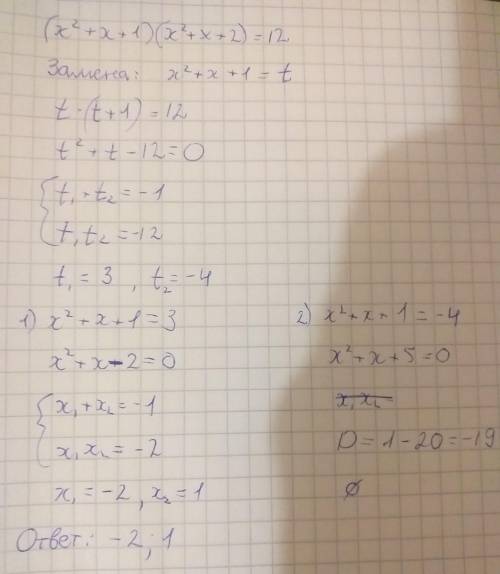 (x²+x+1)(x²+x+2)=12
Замена: x²+x+1=t
t·(t+1)=12
t²+t-12=0
{t₁+t₂=-1
t₁t₂=-12
t₁=3, t₂=-4
1) x²+x+1=3
x²+x-2=0
{x₁+x₂=-1
x₁x₂=-2
x₁=-2, x₂=1
2) x²+x+1=-4
x²+x+5=0
x₁x₂
D=1-20=-19
∅
Ответ: -2; 1